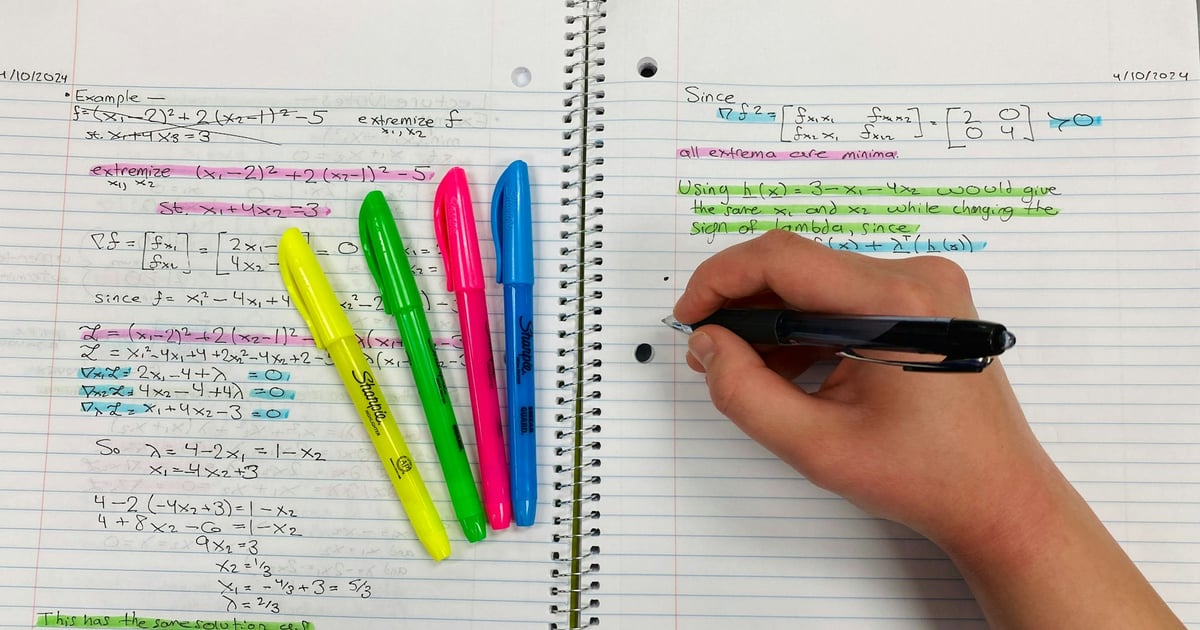 4/10/2024
• Example —
f=(x₁-2)²+2(x₂-1)²-5 extremize f
x₁,x₂
st. x₁+4x₃=3
extremize (x₁-2)²+2(x₂-1)²-5
x₁, x₂
st. x₁+4x₂=3
∇f = [fx₁ = [2x₁- = 0 x₁=
fx₂] 4x₂- x₂=
since f= x₁²-4x₁+4 x₂²-2
ℒ = (x₁-2)²+2(x₂-1)²- λ(x₁+ -3
ℒ = x₁²-4x₁+4+2x₂²-4x₂+2- λ(x₁ -3
∇x₁ℒ= 2x₁-4+λ =0
∇x₂ℒ= 4x₂-4+4λ =0
∇λℒ= x₁+4x₂-3 =0
So λ=4-2x₁=1-x₂
x₁=-4x₂+3
4-2(-4x₂+3)=1-x₂
4+8x₂-6=1-x₂
9x₂=3
x₂=1/3
x₁=-4/3+3=5/3
λ=2/3
This has the same solution
4/10/2024
Since
∇f²= [fx₁x₁ fx₁x₂ = [2 0 ≻0
fx₂x₁ fx₂x₂] 0 4]
all extrema are minima.
Using h(x)=3-x₁-4x₂ would give
the same x₁ and x₂ while changing the
sign of lambda, since
f(x)+λᵀ(h(x))
Sharpie
Sharpie
SMEAR GUARD